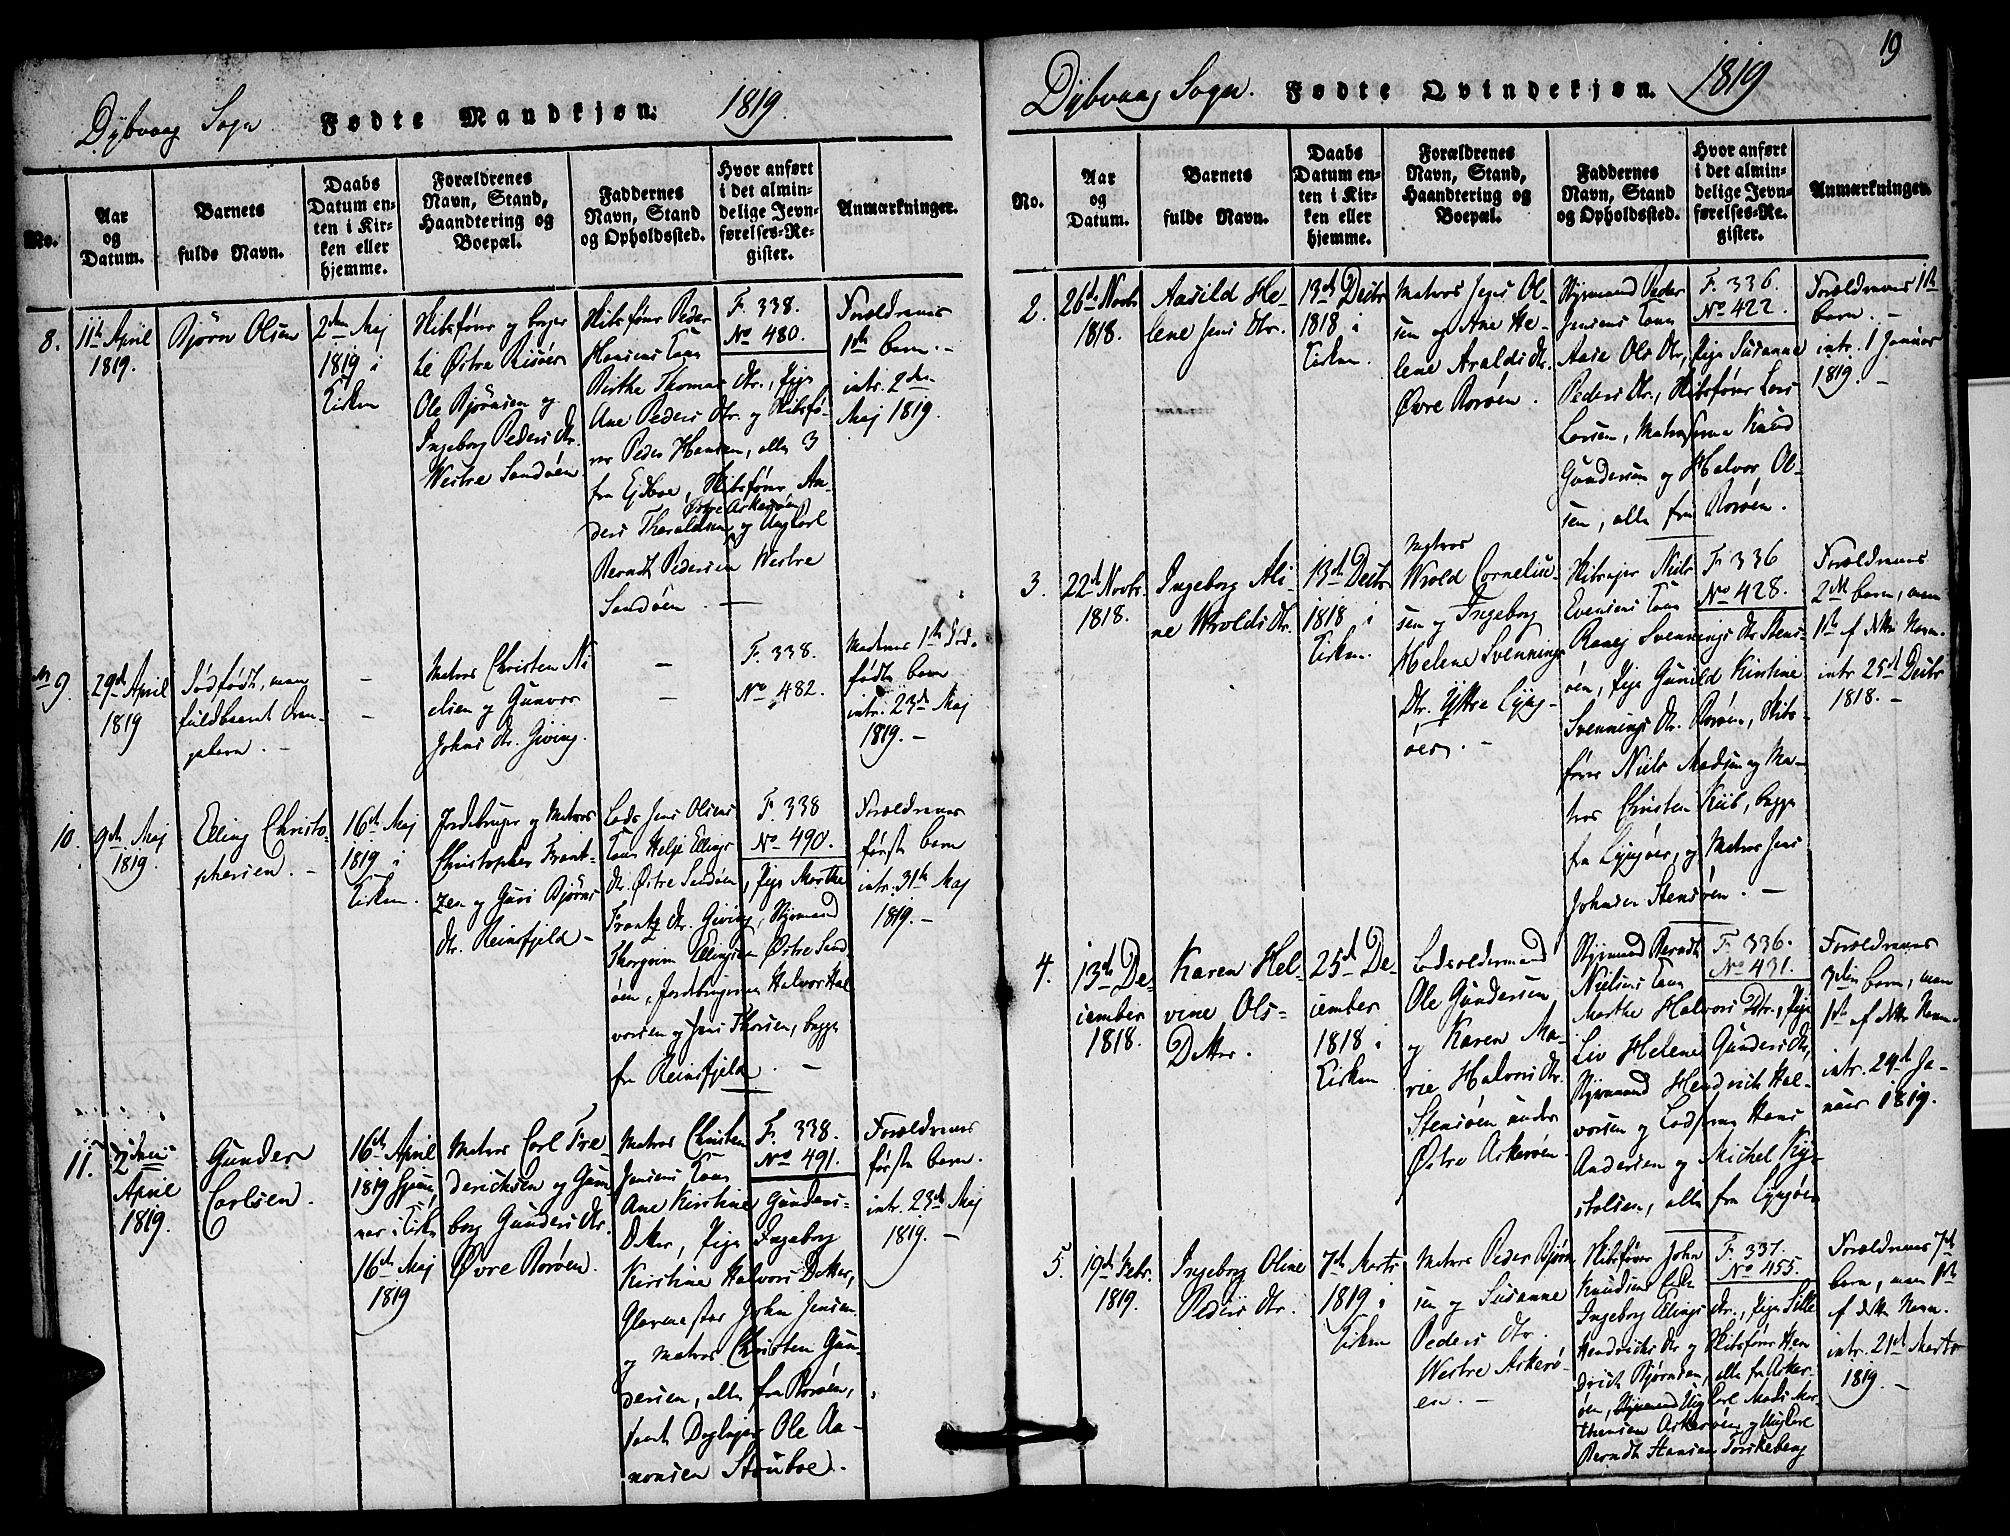 Dybvaag Sogn
Fødte Mandkjøn.
1819.
No.
Aar
og
Datum.
Barnets
fulde Navn.
Daabs
Datum en-
ten i Kir-
ken eller
hjemme.
Forældrenes
Navn, Stand,
Haandtering og
Boepæl.
Faddernes
Navn, Stand
og Opholdssted.
Hvor anført
i det almin-
delige Jevn-
førelses-Re-
gister.
Anmærkninger.
8.
11te April
1819.
Bjørn Olsen
2den Maj
1819 i
Kirken
Skibsfører og borger
til Østre Risøer
Ole Bjørnsen og
Ingeborg Peders Dtr.
Westre Sandøen
Skibsfører Peder
Hansens Kone
Birthe Thomas Dtr., Pige
Ane Peders Dtr. og Skibsfø-
rer Peder Hansen, alle 3
fra Ejdboe, Skibsfører An-
ders Tharaldsen Østre Askerøen
og Ungkarl
Berndt Pedersen Westre
Sandøen.
F. 338.
No 480.
Forældrenes
1ste barn.
intr. 2den
Maj 1819.
9.
29de April
1819
Dødfødt, men
fuldbaaret Dren-
gebarn.
-
-
Matros Christen Ni-
elsen og Gunvor
Johns Dtr. Giving.
-
-
F. 338.
No 482.
Moderens 1ste Død-
fødte barn
intr. 23de Maj
1819.
10.
9de Maj
1819.
Elling Christo-
phersen.
16de Maj
1819 i
Kirken.
Jordebruger og Matros
Christopher Frant-
zen og Guri Bjørns
Dtr. Reinsfjeld
Lods Jens Olsens
Kone Helje Ellings
Dtr. Østre Sandøen, Pige Marthe
Frantz Dtr. Giving, Styrmand
Thorgrim Ellingsen Østre Sand-
øen, Jordebrugerne Halvor Hal-
vorsen og Jens Thorsen, begge
fra Reinsfjeld.
F. 338
No 490.
Forældrenes
første barn
intr. 31te Maj
1819.
11.
2den
April
1819.
Gunder
Carlsen.
16de April
1819 hjem-
me i Kirken
16de Maj
1819
Matros Carl Fre-
dericksen og Gun-
borg Gunders Dtr.
Øvre Borøen.
Matros Christen
Jensens Kone
Ane Kirstine Gunders-
Dtter, Pige Ingeborg
Kirstine Halvors Datter,
Glarmester John Jensen
og Matros Christen Gun-
dersen, alle fra Borøen,
samt Daglejer Ole Aa-
nonsen Stouboe.
F. 338.
No 491.
Forældrenes
første barn.
intr. 23de Maj
1819.
19
Dybvaag Sogn.
Fødte Qvindekjøn.
1819
No.
Aar
og
Datum.
Barnets
fulde Navn.
Daabs
Datum en-
ten i Kir-
ken eller
hjemme.
Forældrenes
Navn, Stand,
Haandtering og
Boepæl.
Faddernes
Navn, Stand
og Opholdssted.
Hvor anført
i det almin-
delige Jevn-
førelses-Re-
gister.
Anmærkninger.
2.
26de Novbr
1818.
Aasild He-
lene Jens Dtr.
13de Decbr
1818 i
Kirken.
Matros Jens Ol-
sen og Ane He-
lene Aralds Dtr.
Øvre Borøen.
Styrmand Peder
Jensens Kone
Aase Ols Dtr, Pige Susanne
Peders Dtr., Skibsfører Lars
Larsen, Matroserne Knud
Gundersen og Halvor Ol-
sen, alle fra Borøen.
F. 336
No 422.
Forældrenes 1ste
barn.
intr. 1 Januar
1819.
3.
22de Novbr.
1818.
Ingeborg Ali-
ne Wrolds Dtr.
13de Decbr
1818 i
Kirken.
Matros
Wrold Corneliu-
sen og Ingeborg
Helene Svennings
Dtr. Yttre Lyng-
øer.
Skibrejer Niels
Evensens Kone
Ranej Svennings Dtr Stens-
øen, Pige Gunild Kirstine
Svennings Dtr. Borøen, Skibs-
fører Niels Madsen og Ma-
tros Christen Kiib, begge
fra Lyngøer, og Matros Jens
Johnsen Stensøen.
F. 336
No 428.
Forældrenes
2det barn, men
1ste af dette Navn.
intr. 25de Decbr
1818.
4.
13de De-
cember
1818.
Karen Hel-
vine Ols-
Datter.
25de De-
cember
1818 i
Kirken
Lodsoldermand
Ole Gundersen
og Karen Ma-
rie Halvors Dtr.
Stensøen under
Østre Askerøen.
Styrmand Berndt
Nielsens Kone
Marthe Halvors Dtr., Pige
Liv Helene Gunders Dtr,
Styrmand Hendrich Hal-
vorsen og Lodserne Hans
Andersen og Michel Ky-
stolsen, alle fra Lyngøer
F. 336.
No 431.
Forældrenes
3die barn, men
1ste af dette Navn.
intr. 24de Ja-
nuar 1819.
5.
19de Febr.
1819.
Ingeborg Oline
Peders Dtr.
7de Marts
1819 i
Kirken
Matros Peder Bjørn-
sen og Susanne
Peders Dtr.
Westre Askerø-
en.
Skibsfører John
Knudsens Enke
Ingeborg Ellings Dtr., Pige Sille
Hendrichs Dtr og Skibsfører Hen-
drich Bjørnsen, alle fra Asker-
øen, Ungkarl Mads Mor-
thensen Askerøen og Ungkarl
Berndt Hansen Torskeberg
F. 337.
No 455.
Forældrenes 7de
barn, men 1ste
af dette Navn.
intr. 21de Marts
1819.